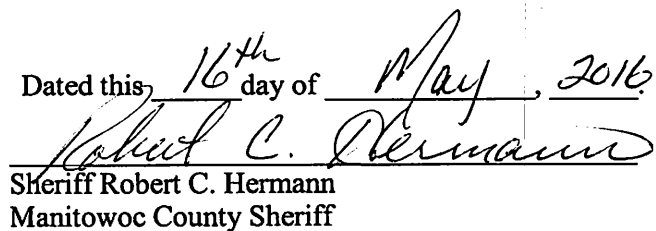 Dated this 16th day of May, 2016.
Robert C. Hermann
Sheriff Robert C. Hermann
Manitowoc County Sheriff